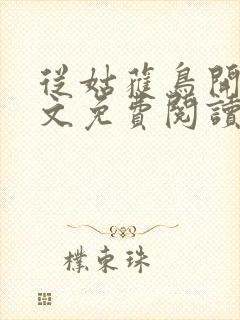 從姑蘿鳥開
文免費閱讀
樸東珠